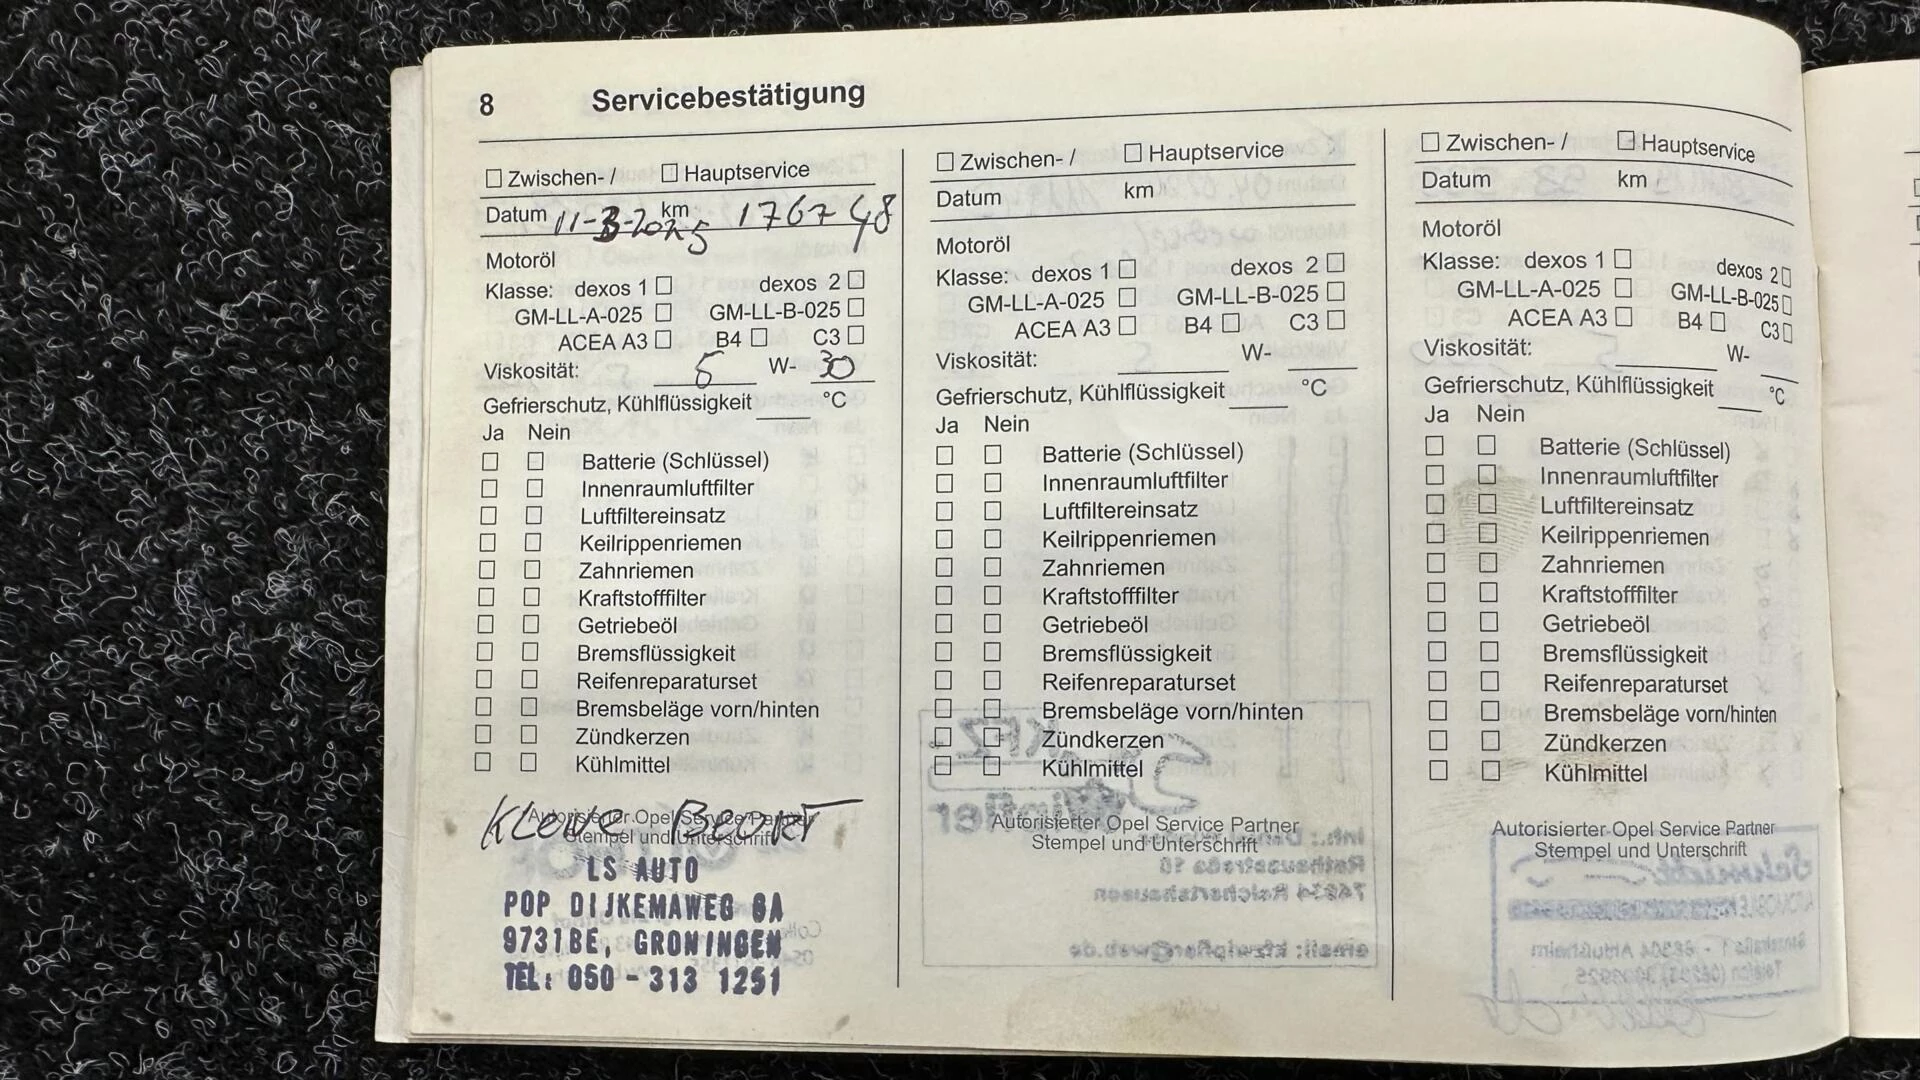 8 Servicebestätigung
☐ Zwischen- / ☐ Hauptservice
Datum 11-3-2025 km 176748
Motoröl
Klasse: dexos 1 ☐ dexos 2 ☐
GM-LL-A-025 ☐ GM-LL-B-025 ☐
ACEA A3 ☐ B4 ☐ C3 ☐
Viskosität: 5 W- 30
Gefrierschutz, Kühlflüssigkeit ____ °C
Ja Nein
☐ ☐ Batterie (Schlüssel)
☐ ☐ Innenraumluftfilter
☐ ☐ Luftfiltereinsatz
☐ ☐ Keilrippenriemen
☐ ☐ Zahnriemen
☐ ☐ Kraftstofffilter
☐ ☐ Getriebeöl
☐ ☐ Bremsflüssigkeit
☐ ☐ Reifenreparaturset
☐ ☐ Bremsbeläge vorn/hinten
☐ ☐ Zündkerzen
☐ ☐ Kühlmittel
Autorisierter Opel Service Partner
Stempel und Unterschrift
KLEINE BEURT
LS AUTO
POP DIJKEMAWEG 8A
9731BE, GRONINGEN
TEL: 050 - 313 1251
☐ Zwischen- / ☐ Hauptservice
Datum km
Motoröl
Klasse: dexos 1 ☐ dexos 2 ☐
GM-LL-A-025 ☐ GM-LL-B-025 ☐
ACEA A3 ☐ B4 ☐ C3 ☐
Viskosität: ____ W- ____
Gefrierschutz, Kühlflüssigkeit ____ °C
Ja Nein
☐ ☐ Batterie (Schlüssel)
☐ ☐ Innenraumluftfilter
☐ ☐ Luftfiltereinsatz
☐ ☐ Keilrippenriemen
☐ ☐ Zahnriemen
☐ ☐ Kraftstofffilter
☐ ☐ Getriebeöl
☐ ☐ Bremsflüssigkeit
☐ ☐ Reifenreparaturset
☐ ☐ Bremsbeläge vorn/hinten
☐ ☐ Zündkerzen
☐ ☐ Kühlmittel
Autorisierter Opel Service Partner
Stempel und Unterschrift
☐ Zwischen- / ☐ Hauptservice
Datum km
Motoröl
Klasse: dexos 1 ☐ dexos 2 ☐
GM-LL-A-025 ☐ GM-LL-B-025 ☐
ACEA A3 ☐ B4 ☐ C3 ☐
Viskosität: ____ W- ____
Gefrierschutz, Kühlflüssigkeit ____ °C
Ja Nein
☐ ☐ Batterie (Schlüssel)
☐ ☐ Innenraumluftfilter
☐ ☐ Luftfiltereinsatz
☐ ☐ Keilrippenriemen
☐ ☐ Zahnriemen
☐ ☐ Kraftstofffilter
☐ ☐ Getriebeöl
☐ ☐ Bremsflüssigkeit
☐ ☐ Reifenreparaturset
☐ ☐ Bremsbeläge vorn/hinten
☐ ☐ Zündkerzen
☐ ☐ Kühlmittel
Autorisierter Opel Service Partner
Stempel und Unterschrift